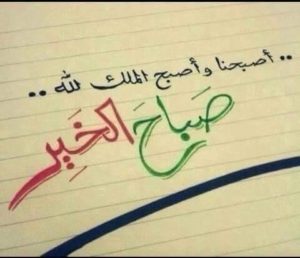 .. أصبحنا وأصبح الملك لله ..
صباحَ الخَيِر